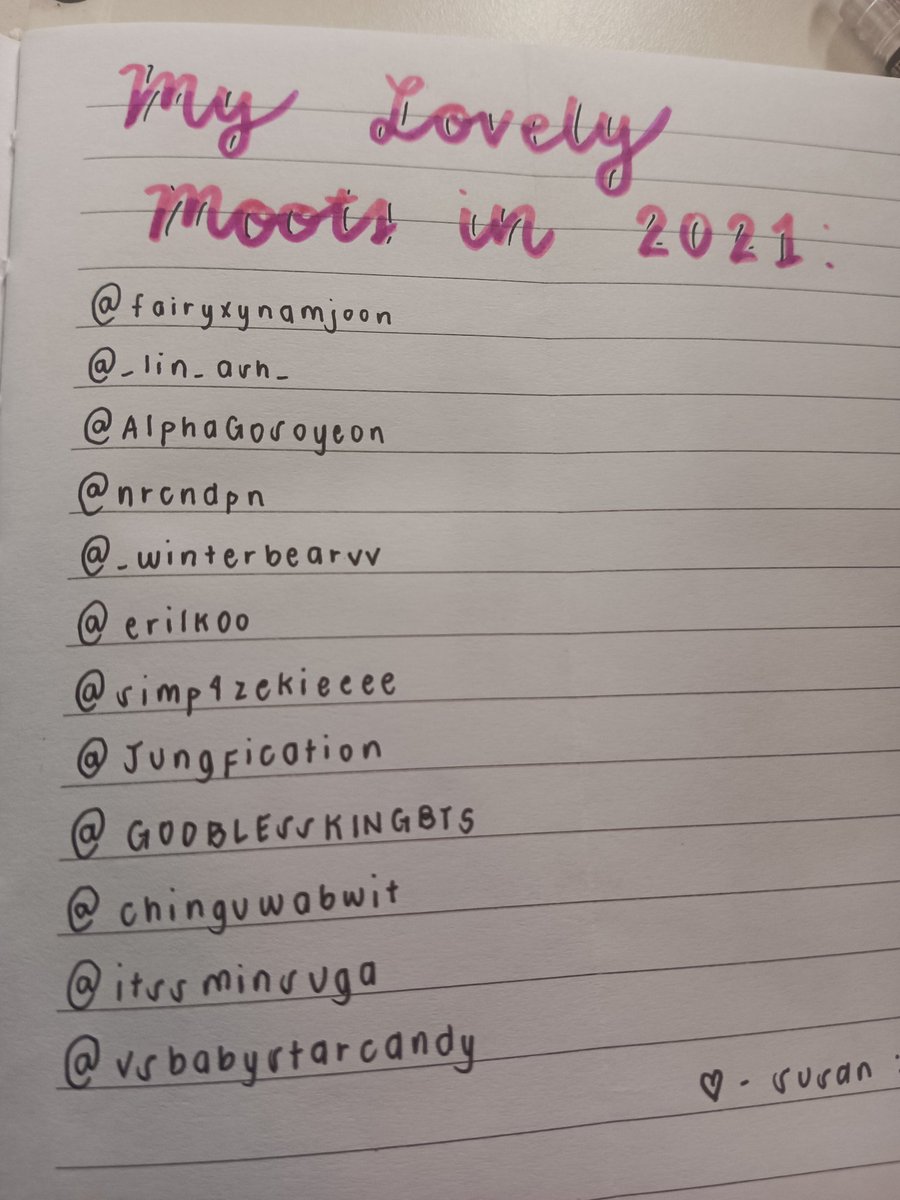 My Lovely
Moots in 2021:
@fairyxynamjoon
@_lin_arh_
@AlphaGosoyeon
@nrcndpn
@_winterbearvv
@erilkoo
@simp4zekieeee
@Jungfication
@GODBLESSKINGBTS
@chinguwabwit
@itssminsuga
@vsbabystarcandy
♡ - susan :